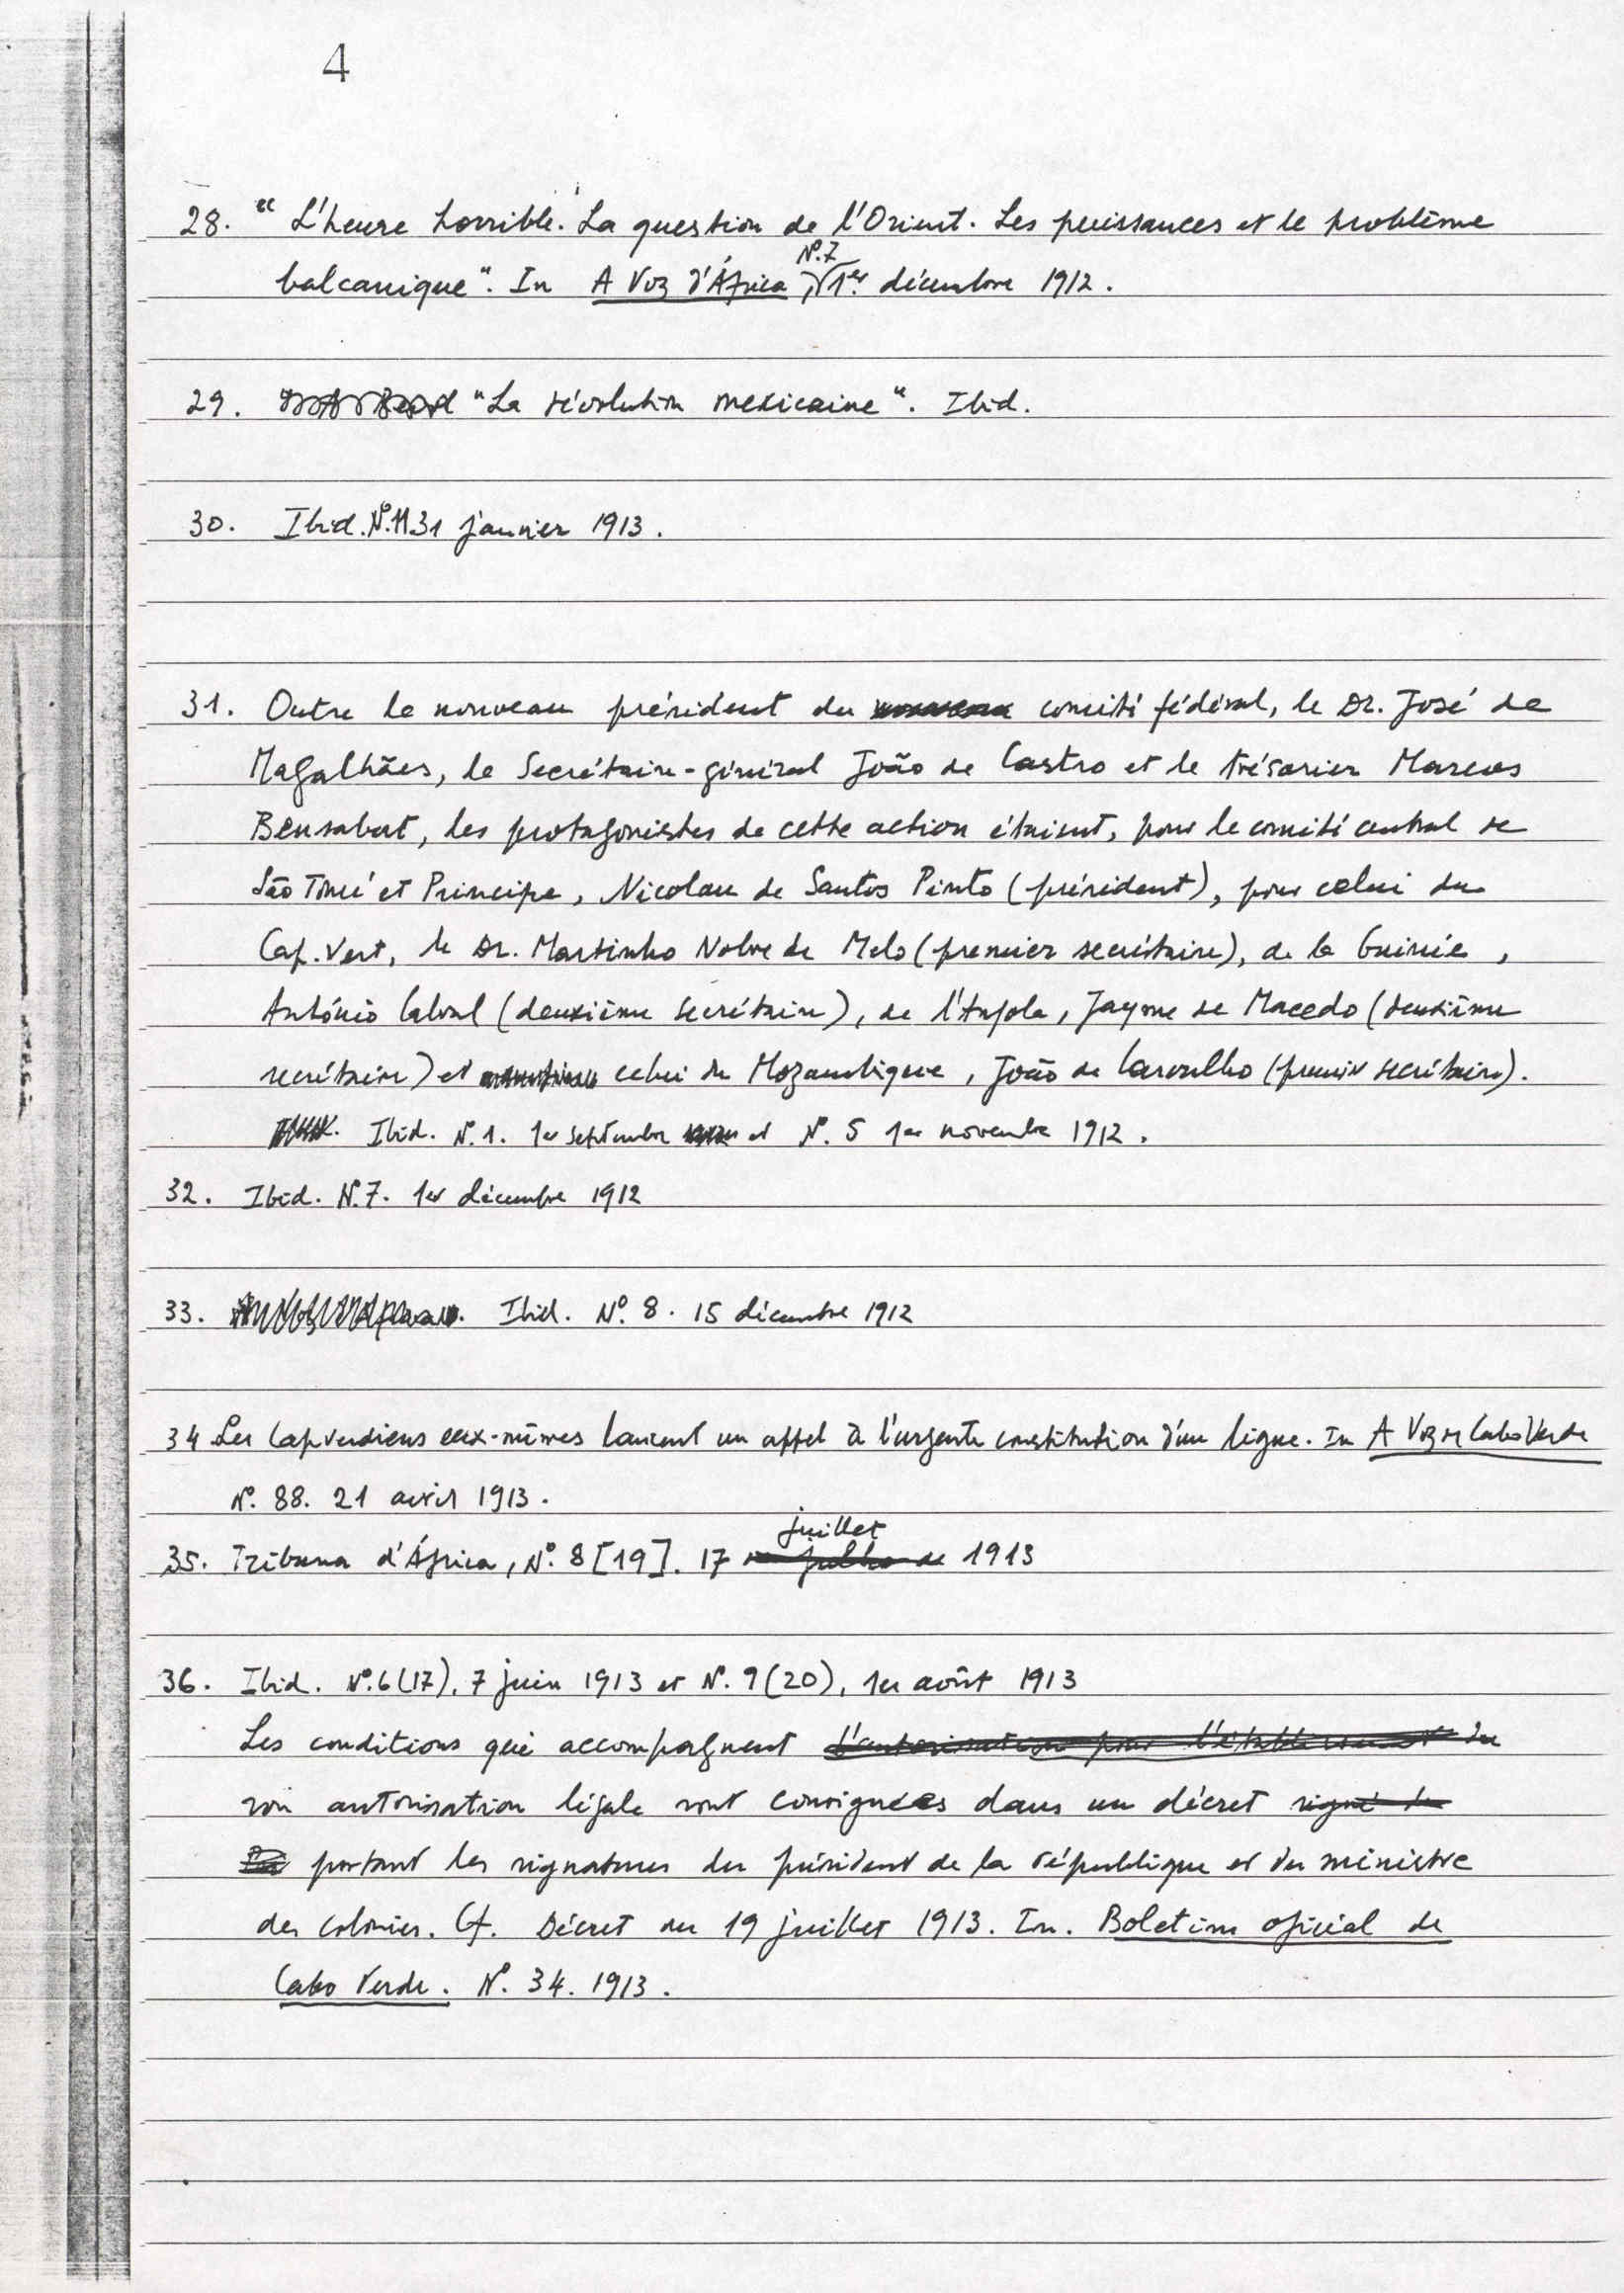 4
28. "L'heure horrible. La question de l'Orient. Les puissances et le problème
balcanique". In A Voz d'África, Nº.7 1er décembre 1912.
29. "La révolution mexicaine". Ibid.
30. Ibid. Nº.11 31 janvier 1913.
31. Outre le nouveau président du nouveau comité fédéral, le Dr. José de
Magalhães, le Secrétaire-général João de Castro et le trésorier Marcos
Bensabat, les protagonistes de cette action étaient, pour le comité central de
São Tomé et Principe, Nicolau de Santos Pinto (président), pour celui du
Cap. Vert, le Dr. Martinho Nobre de Melo (premier secrétaire), de la Guinée,
António Cabral (deuxième secrétaire), de l'Angola, Jayme de Macedo (deuxième
secrétaire) et celui du Mozambique, João de Carvalho (premier secrétaire).
Ibid. Nº.1. 1er septembre et Nº. 5 1er novembre 1912.
32. Ibid. Nº.7. 1er décembre 1912
33. Ibid. Nº. 8. 15 décembre 1912
34 Les Capverdiens eux-mêmes lancent un appel à l'urgente constitution d'une ligue. In A Voz de Cabo Verde
Nº. 88. 21 avril 1913.
juillet
35. Tribuna d'África, Nº. 8 [19]. 17 de julho de 1913
36. Ibid. Nº.6(17), 7 juin 1913 et Nº. 9(20), 1er août 1913
Les conditions qui accompagnent l'autorisation pour l'établissement du
son autorisation légale sont consignées dans un décret signé du
portant les signatures du président de la république et du ministre
des colonies. Cf. Décret du 19 juillet 1913. In. Boletim oficial de
Cabo Verde. Nº. 34. 1913.